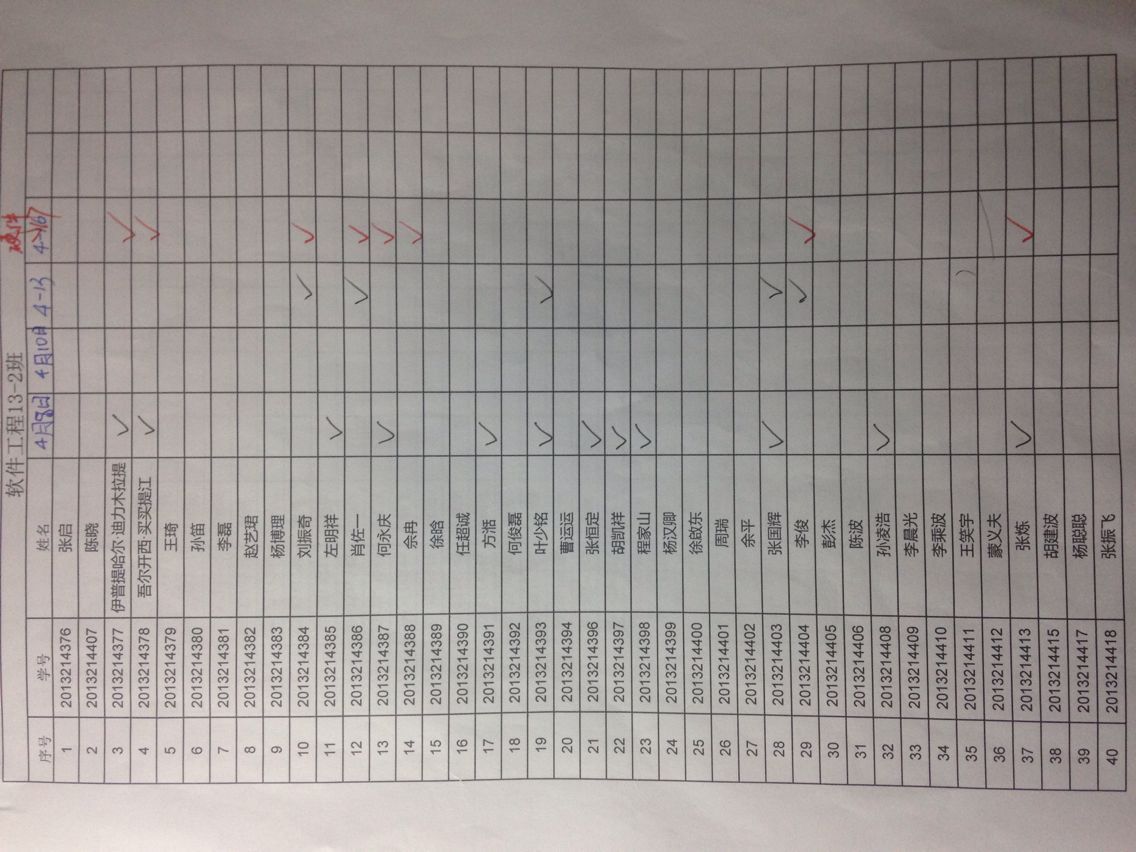 软件工程13-2班 硬件
序号 学号 姓名 4月8日 4月10日 4-13 4-16
1 2013214376 张启
2 2013214407 陈晓
3 2013214377 伊普提哈尔·迪力木拉提 ✓ ✓
4 2013214378 吾尔开西·买买提江 ✓ ✓
5 2013214379 王琦
6 2013214380 孙笛
7 2013214381 李磊
8 2013214382 赵艺珺
9 2013214383 杨博理
10 2013214384 刘振奇 ✓ ✓
11 2013214385 左明祥 ✓
12 2013214386 肖佐一 ✓ ✓
13 2013214387 何永庆 ✓ ✓
14 2013214388 佘冉 ✓
15 2013214389 徐晗
16 2013214390 任超诚
17 2013214391 方湉 ✓
18 2013214392 何俊磊
19 2013214393 叶少铭 ✓ ✓
20 2013214394 曹运运
21 2013214396 张恒定 ✓
22 2013214397 胡凯祥 ✓
23 2013214398 程家山 ✓
24 2013214399 杨汉卿
25 2013214400 徐啟东
26 2013214401 周瑞
27 2013214402 余平
28 2013214403 张国辉 ✓ ✓
29 2013214404 李俊 ✓ ✓
30 2013214405 彭杰
31 2013214406 陈波
32 2013214408 孙凌浩 ✓
33 2013214409 李晨光
34 2013214410 李乘波
35 2013214411 王笑宇
36 2013214412 蒙义夫
37 2013214413 张炼 ✓ ✓
38 2013214415 胡建波
39 2013214417 杨聪聪
40 2013214418 张振飞